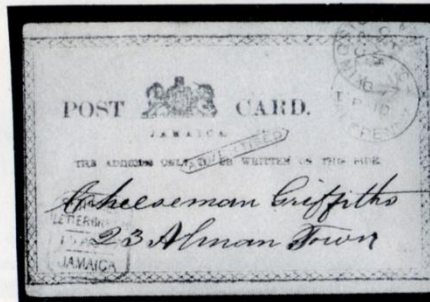 POST CARD.
JAMAICA.
ADVERTISED
THE ADDRESS ONLY TO BE WRITTEN ON THIS SIDE
Cheeseman Griffiths
23 Alman Town
LETTER
JAMAICA